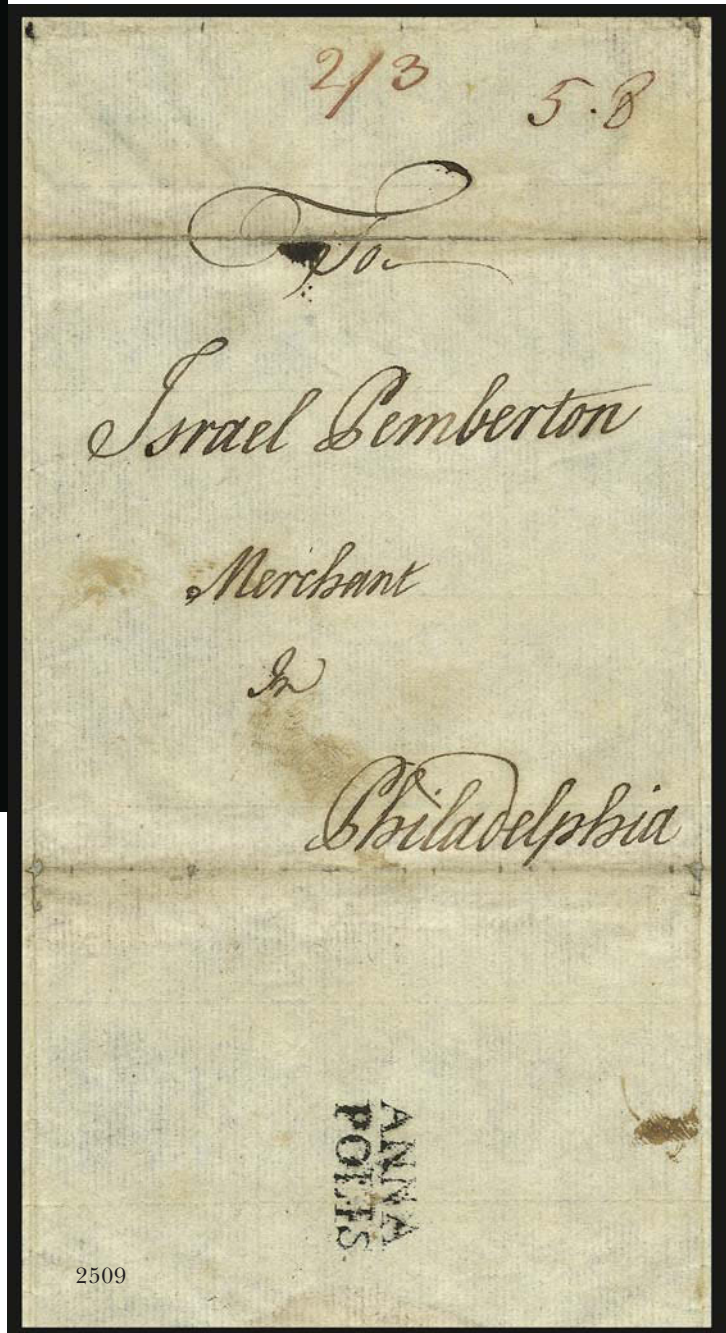 2/3
5.8
To
Israel Pemberton
Merchant
In
Philadelphia
ANNA
POLIS
2509